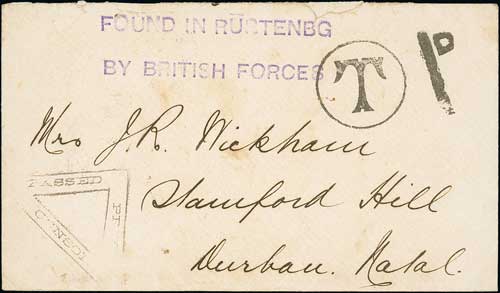 FOUND IN RUSTENBG
BY BRITISH FORCES
T
1d
Mrs J. R. Wickham
Stamford Hill
Durban. Natal.
PASSED
PT
CENSOR